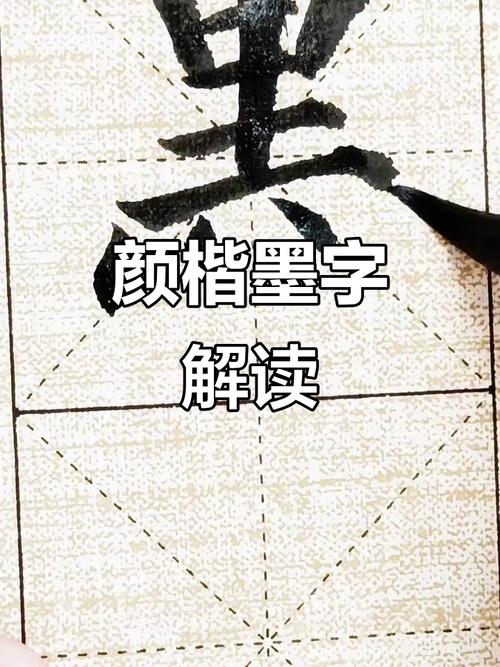 黑
颜楷墨字
解读